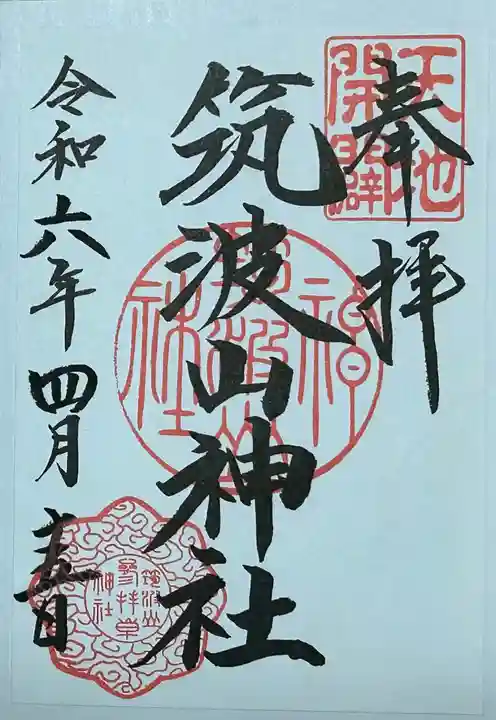 奉拝
天地
開闢
筑波山神社
筑波山神社
令和六年四月
日
筑波山
參拝章
神社